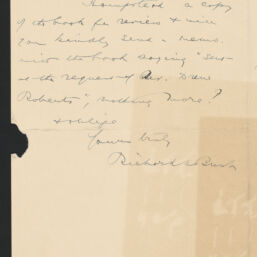 Hempstead a copy
of the book for review & will
you kindly send a memo.
with the book saying "Sent
at the request of Rev. Drew
Roberts", nothing more?
& oblige
Yours truly
Richard